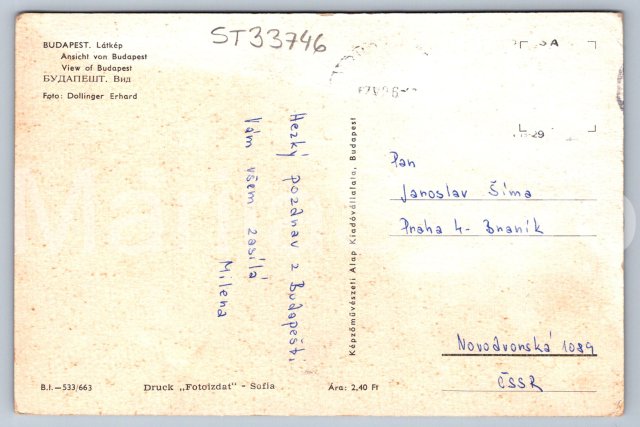 ST33746
BUDAPEST. Látkép
Ansicht von Budapest
View of Budapest
БУДАПЕШТ. Вид
Foto: Dollinger Erhard
Hezký pozdrav z Budapešti
Vám všem zasílá
Milena
Képzőművészeti Alap Kiadóvállalata, Budapest
Pan
Jaroslav Šíma
Praha 4 - Braník
Novodvorská 1089
ČSSR
B.I.—533/663
Druck „Fotoizdat" - Sofia
Ára: 2,40 Ft